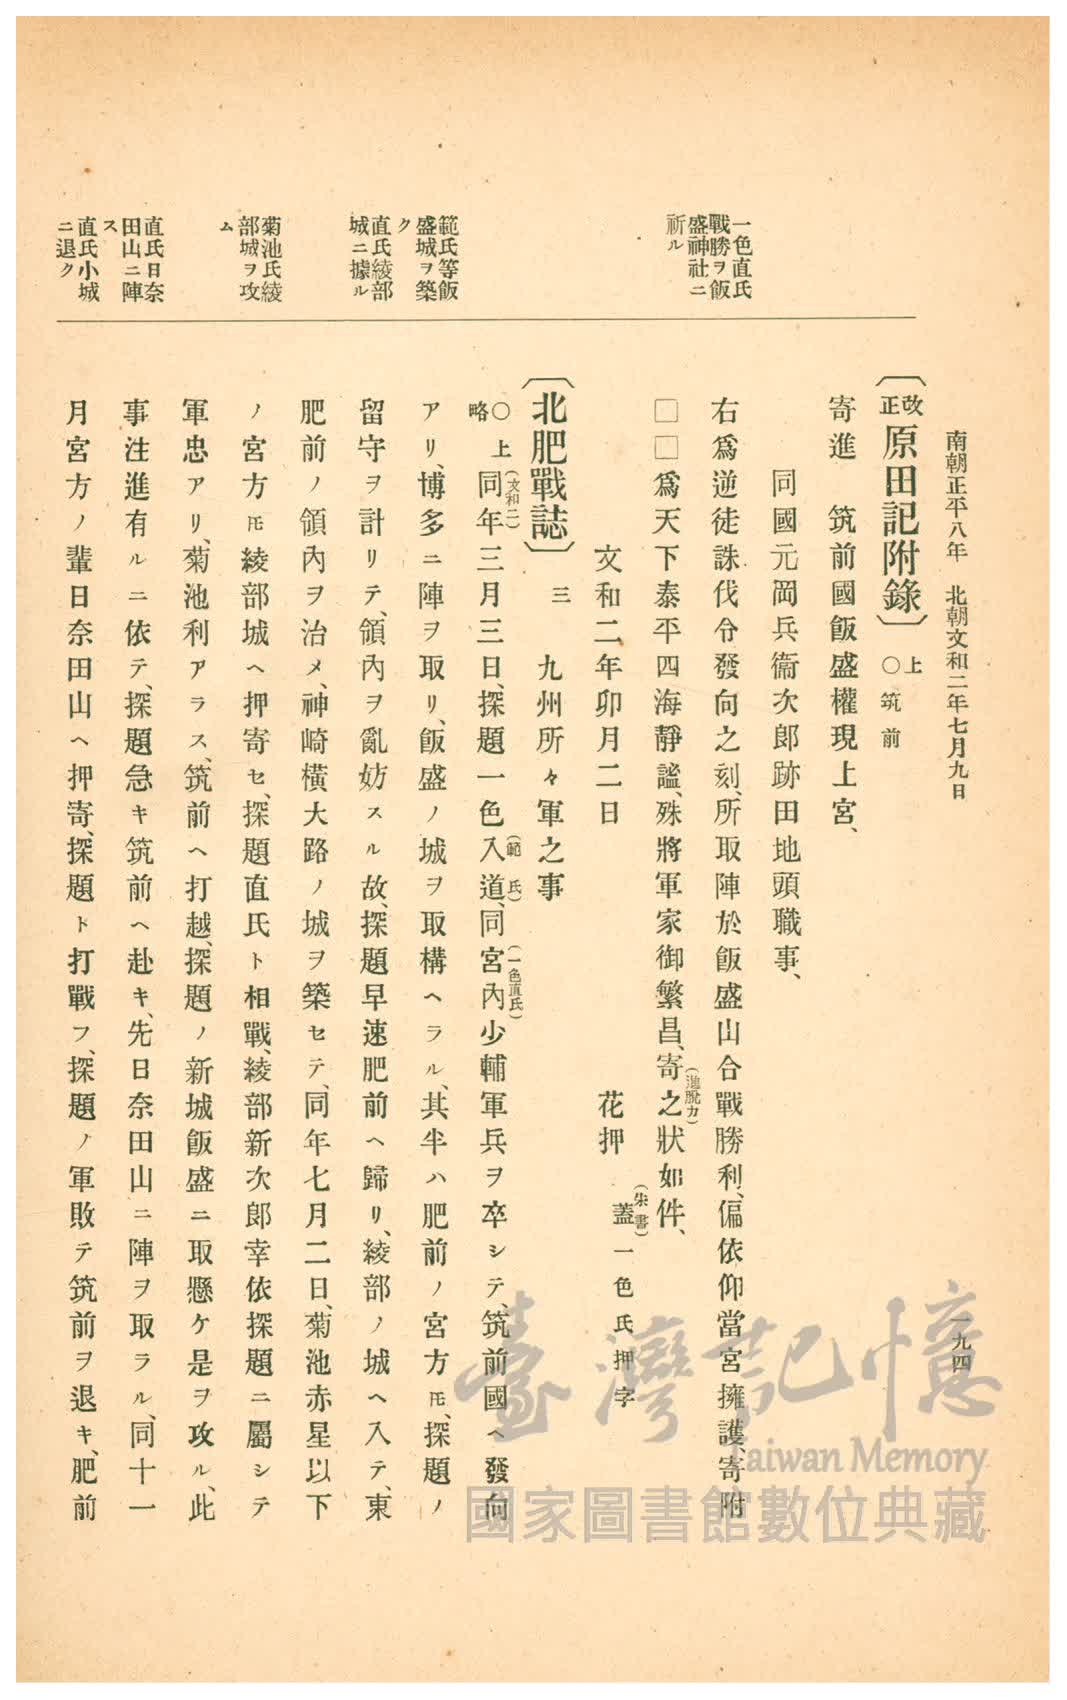 南朝正平八年　北朝文和二年七月九日
一九四
一色直氏
戰勝ヲ飯
盛神社ニ
祈ル
範氏等飯
盛城ヲ築
ク
直氏綾部
城ニ據ル
菊池氏綾
部城ヲ攻
ム
直氏日奈
田山ニ陣
ス
直氏小城
ニ退ク
〔改正原田記附錄〕上○筑前
寄進　筑前國飯盛權現上宮、
同國元岡兵衞次郎跡田地頭職事、
右爲逆徒誅伐令發向之刻、所取陣於飯盛山合戰勝利、偏依仰當宮擁護、寄附
□□爲天下泰平四海靜謐、殊將軍家御繁昌、寄之(進脫カ)狀如件、
文和二年卯月二日　花押　(朱書)蓋一色氏押字
〔北肥戰誌〕三　九州所々軍之事
○上略同年(文和二)三月三日、探題一色入道(範氏)、同宮內少輔(一色直氏)軍兵ヲ卒シテ、筑前國ヘ發向
アリ、博多ニ陣ヲ取リ、飯盛ノ城ヲ取構ヘラル、其半ハ肥前ノ宮方𪜈、探題ノ
留守ヲ計リテ、領內ヲ亂妨スル故、探題早速肥前ヘ歸リ、綾部ノ城ヘ入テ、東
肥前ノ領內ヲ治メ、神崎橫大路ノ城ヲ築セテ、同年七月二日、菊池赤星以下
ノ宮方𪜈綾部城ヘ押寄セ、探題直氏ト相戰、綾部新次郎幸依探題ニ屬シテ
軍忠アリ、菊池利アラス、筑前ヘ打越、探題ノ新城飯盛ニ取懸ケ是ヲ攻ル、此
事注進有ルニ依テ、探題急キ筑前ヘ赴キ、先日奈田山ニ陣ヲ取ラル、同十一
月宮方ノ輩日奈田山ヘ押寄、探題ト打戰フ、探題ノ軍敗テ筑前ヲ退キ、肥前
臺灣記憶
Taiwan Memory
國家圖書館數位典藏